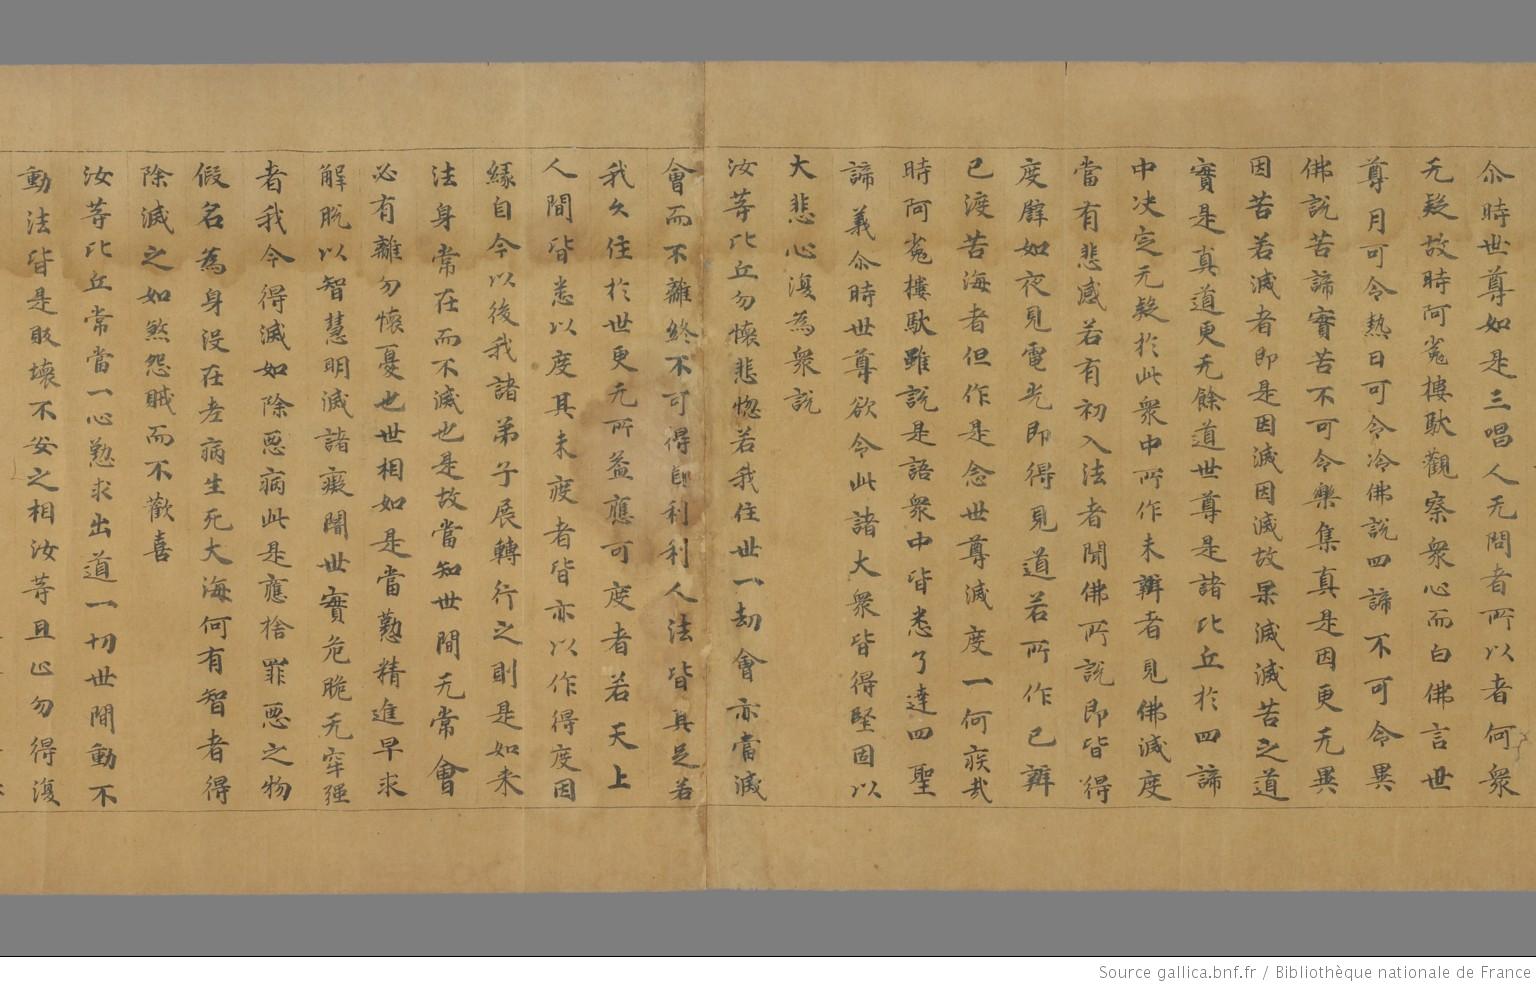 尒時世尊如是三唱人无問者所以者何衆
无疑故時阿㝹樓馱觀察衆心而白佛言世
尊月可令熱日可令冷佛說四諦不可令異
佛說苦諦實苦不可令樂集真是因更无異
因苦若滅者即是因滅因滅故果滅滅苦之道
實是真道更无餘道世尊是諸比丘於四諦
中决定无疑於此衆中所作未辨者見佛滅度
當有悲感若有初入法者聞佛所說即皆得
度譬如夜見電光即得見道若所作已辨
已渡苦海者但作是念世尊滅度一何疾哉
時阿㝹樓馱雖說是語衆中皆悉了達四聖
諦義尒時世尊欲令此諸大衆皆得堅固以
大悲心復為衆說
汝等比丘勿懷悲惚若我住世一劫會亦當滅
會而不離終不可得自利利人法皆具足若
我久住於世更无所益應可度者若天上
人間皆悉以度其未度者皆亦以作得度因
緣自今以後我諸弟子展轉行之則是如来
法身常在而不滅也是故當知世間无常會
必有離勿懷憂也世相如是當懃精進早求
解脫以智慧明滅諸癡闇世實危脆无牢强
者我今得滅如除惡病此是應捨罪惡之物
假名為身沒在老病生死大海何有智者得
除滅之如煞怨賊而不歡喜
汝等比丘常當一心懃求出道一切世間動不
動法皆是敗壞不安之相汝等且止勿得復
Source gallica.bnf.fr / Bibliothèque nationale de France